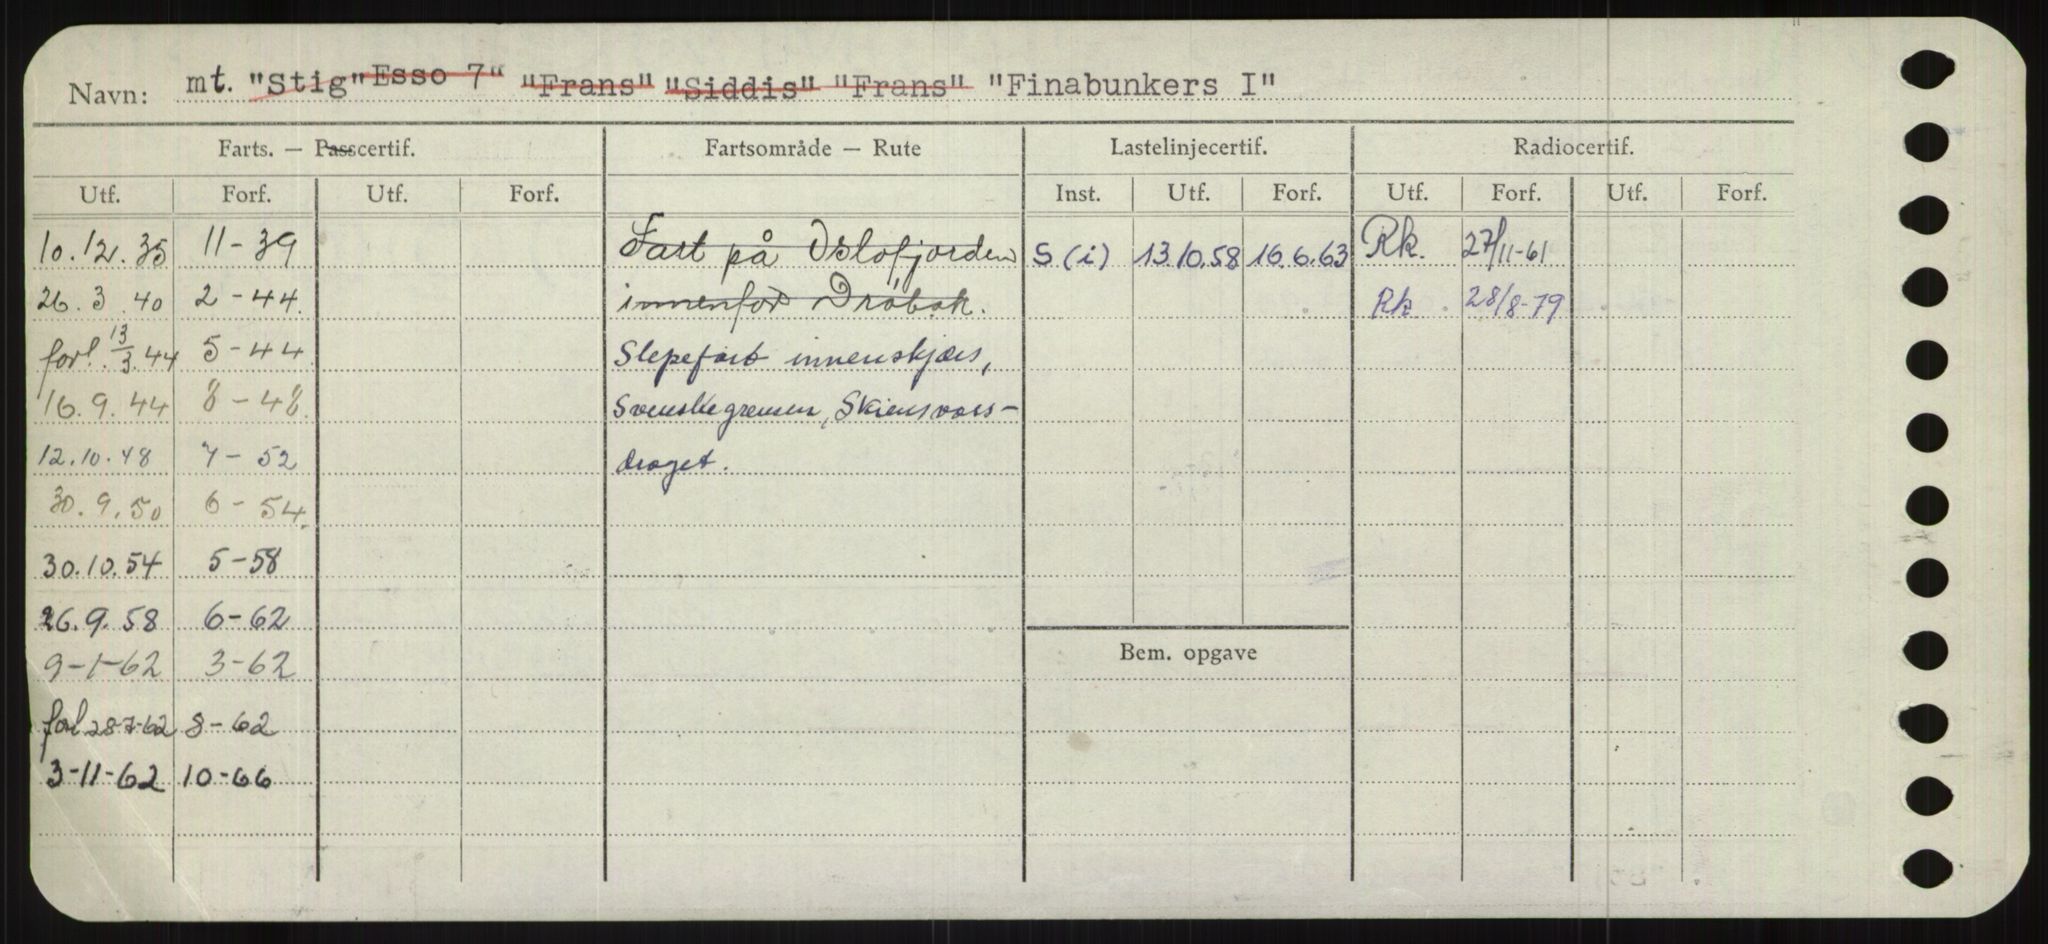 Navn: mt. "Stig" Esso 7" "Frans" "Siddis" "Frans" "Finabunkers I"
Farts. — Passcertif. Fartsområde — Rute Lastelinjecertif. Radiocertif.
Utf. Forf. Utf. Forf. Inst. Utf. Forf. Utf. Forf. Utf. Forf.
10.12.35 11-39 Fart på Oslofjorden S (i) 13.10.58 16.6.63 Rk. 27/11-61
26.3.40 2-44. innenfor Drøbak. Rk. 28/8-79
forl. 13/3.44 5-44 Slepefart innenskjærs,
16.9.44 8-48. Svenskegrensen, Skiensvass-
12.10.48 7-52 draget.
30.9.50 6-54.
30.10.54 5-58
26.9.58 6-62
9-1-62 3-62 Bem. opgave
forl 28-7-62 8-62
3-11-62 10-66